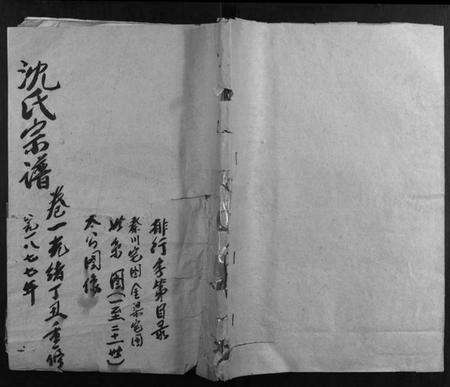 排行字第目录
秦川宅图 金梁宅图
世系图(一至二十一世)
太公图像
沈氏宗谱 卷一 光绪丁丑重修
一八七七年